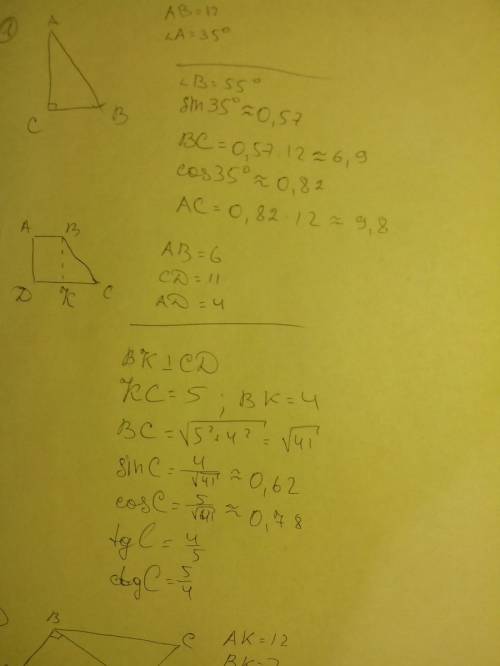 1
A
AB=12
∠A=35°
∠B=55°
sin35°≈0,57
C B
BC=0,57·12≈6,9
cos35°≈0,82
AC=0,82·12≈9,8
A B
AB=6
CD=11
D K C
AD=4
BK⊥CD
KC=5 ; BK=4
BC=√5²+4²=√41
sinC=4/√41≈0,62
cosC=5/√41≈0,78
tgC=4/5
ctgC=5/4
B
C
AK=12